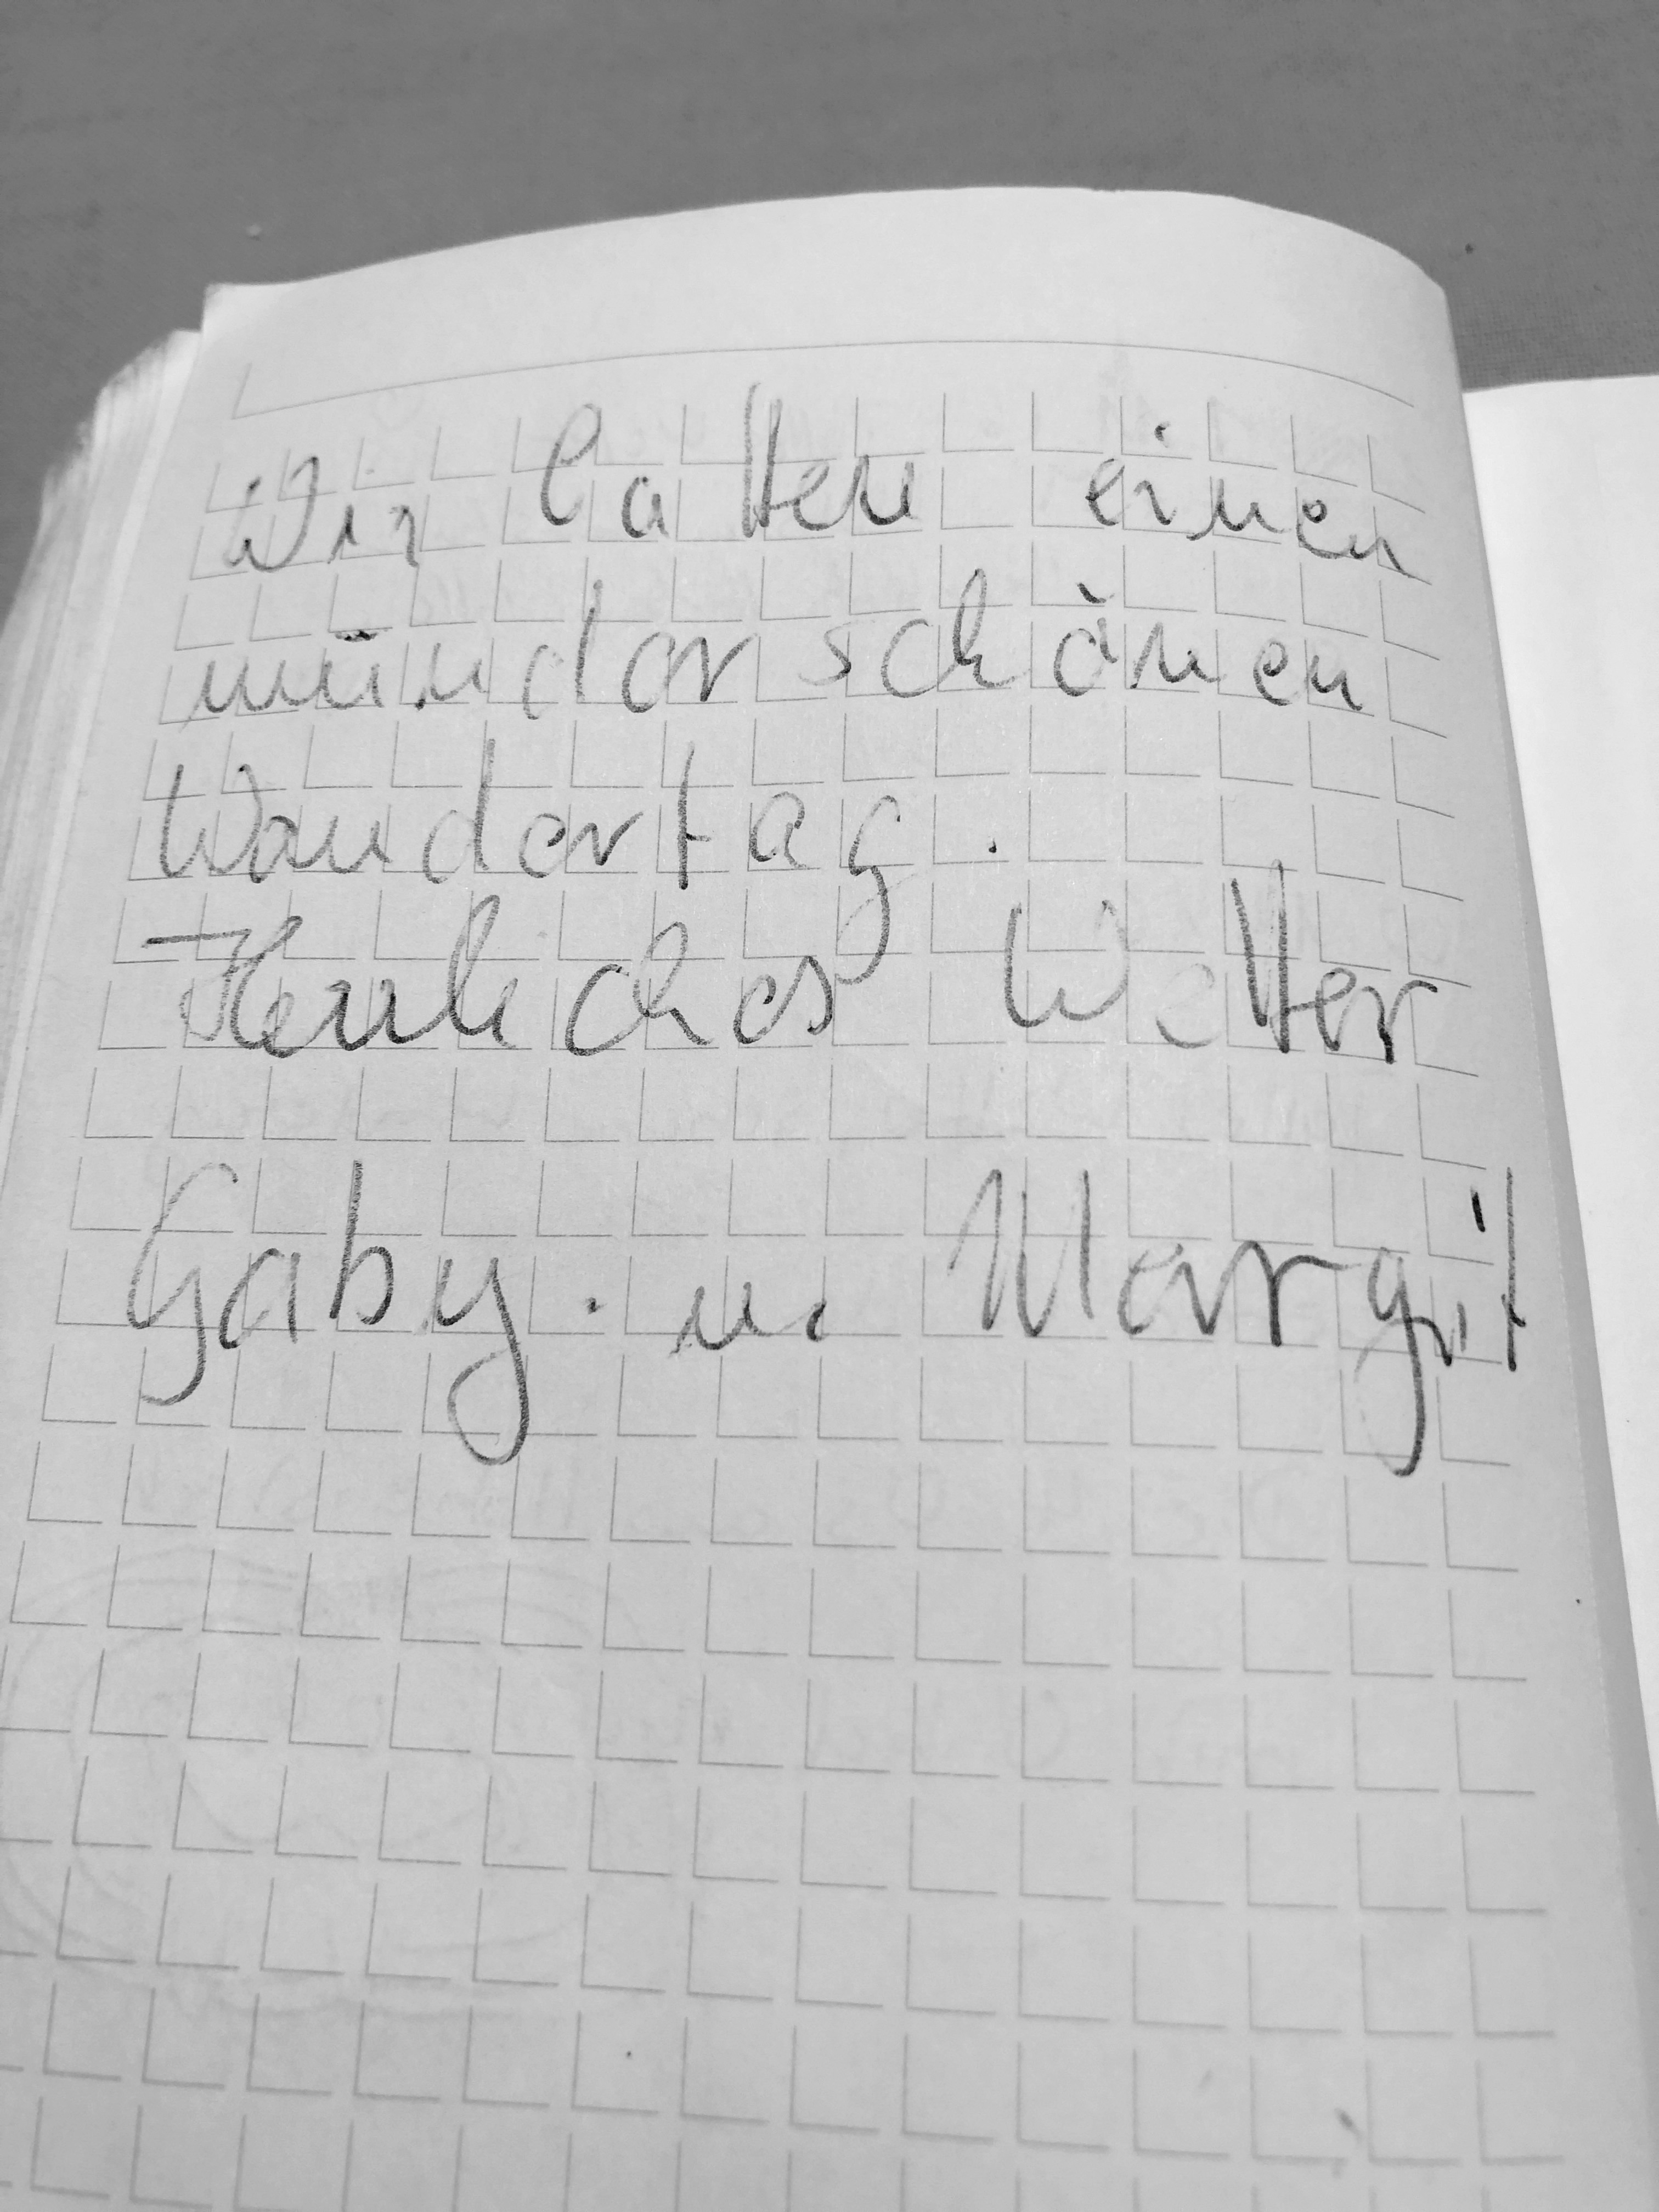 Wir hatten einen
wunderschönen
Wandertag.
Herrliches Wetter
Gaby. u. Margit